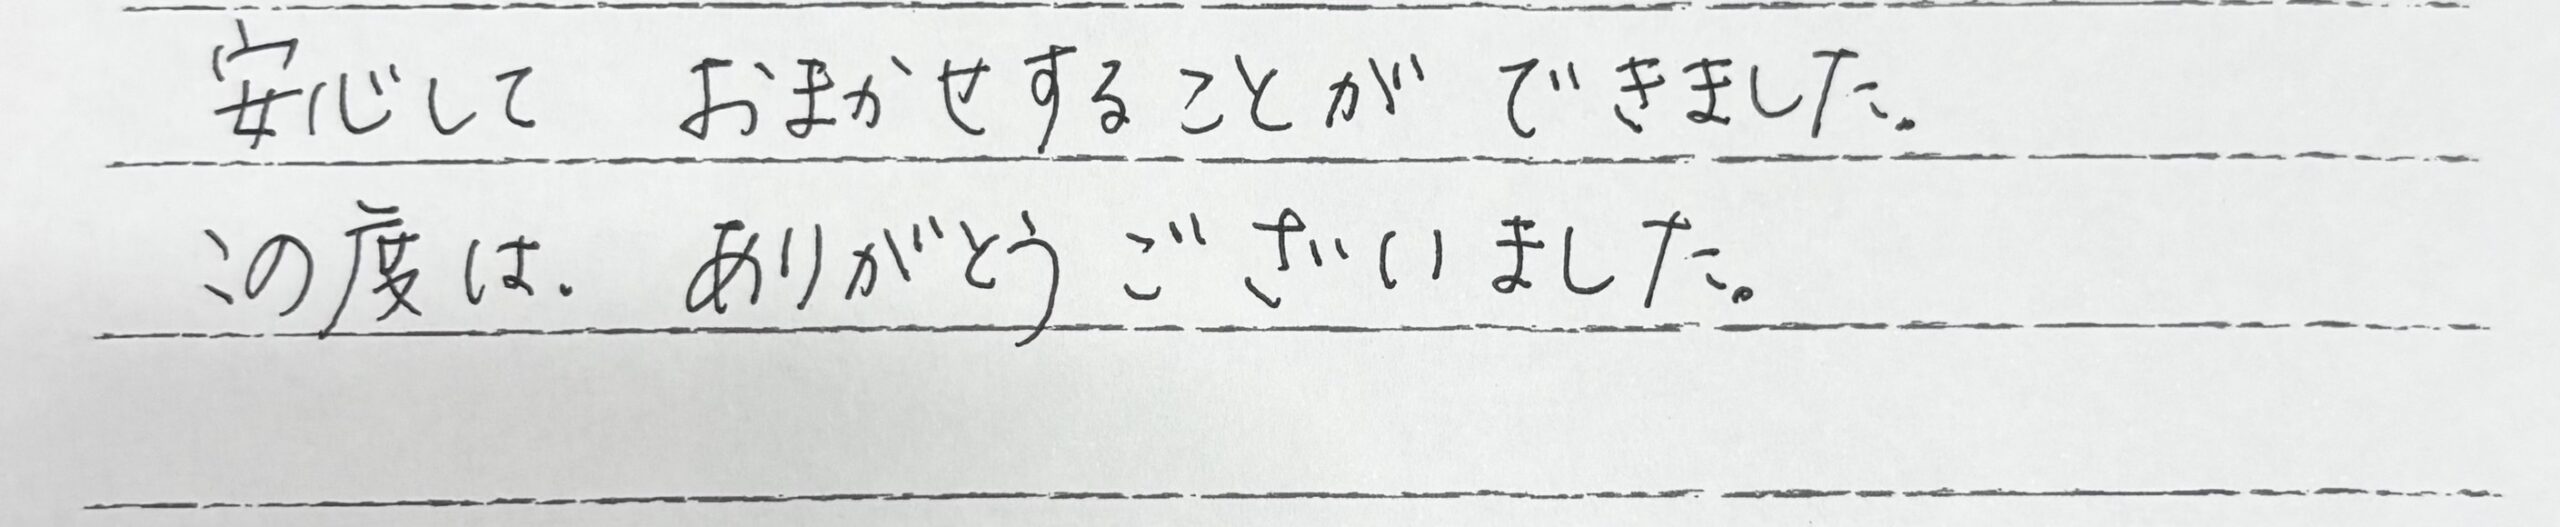 安心して おまかせすることが できました。
この度は、ありがとうございました。